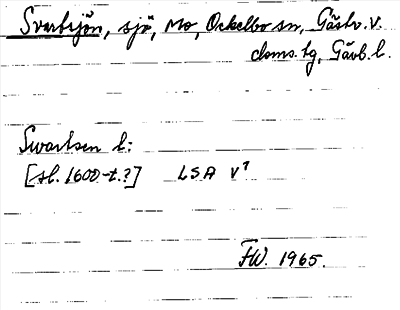 Svartsjön, sjö, Mo, Ockelbo sn, Gästr. v.
doms. tg, Gävb. l.
Swartsen l:
[sl. 1600-t.?] LSA V?
FW. 1965.